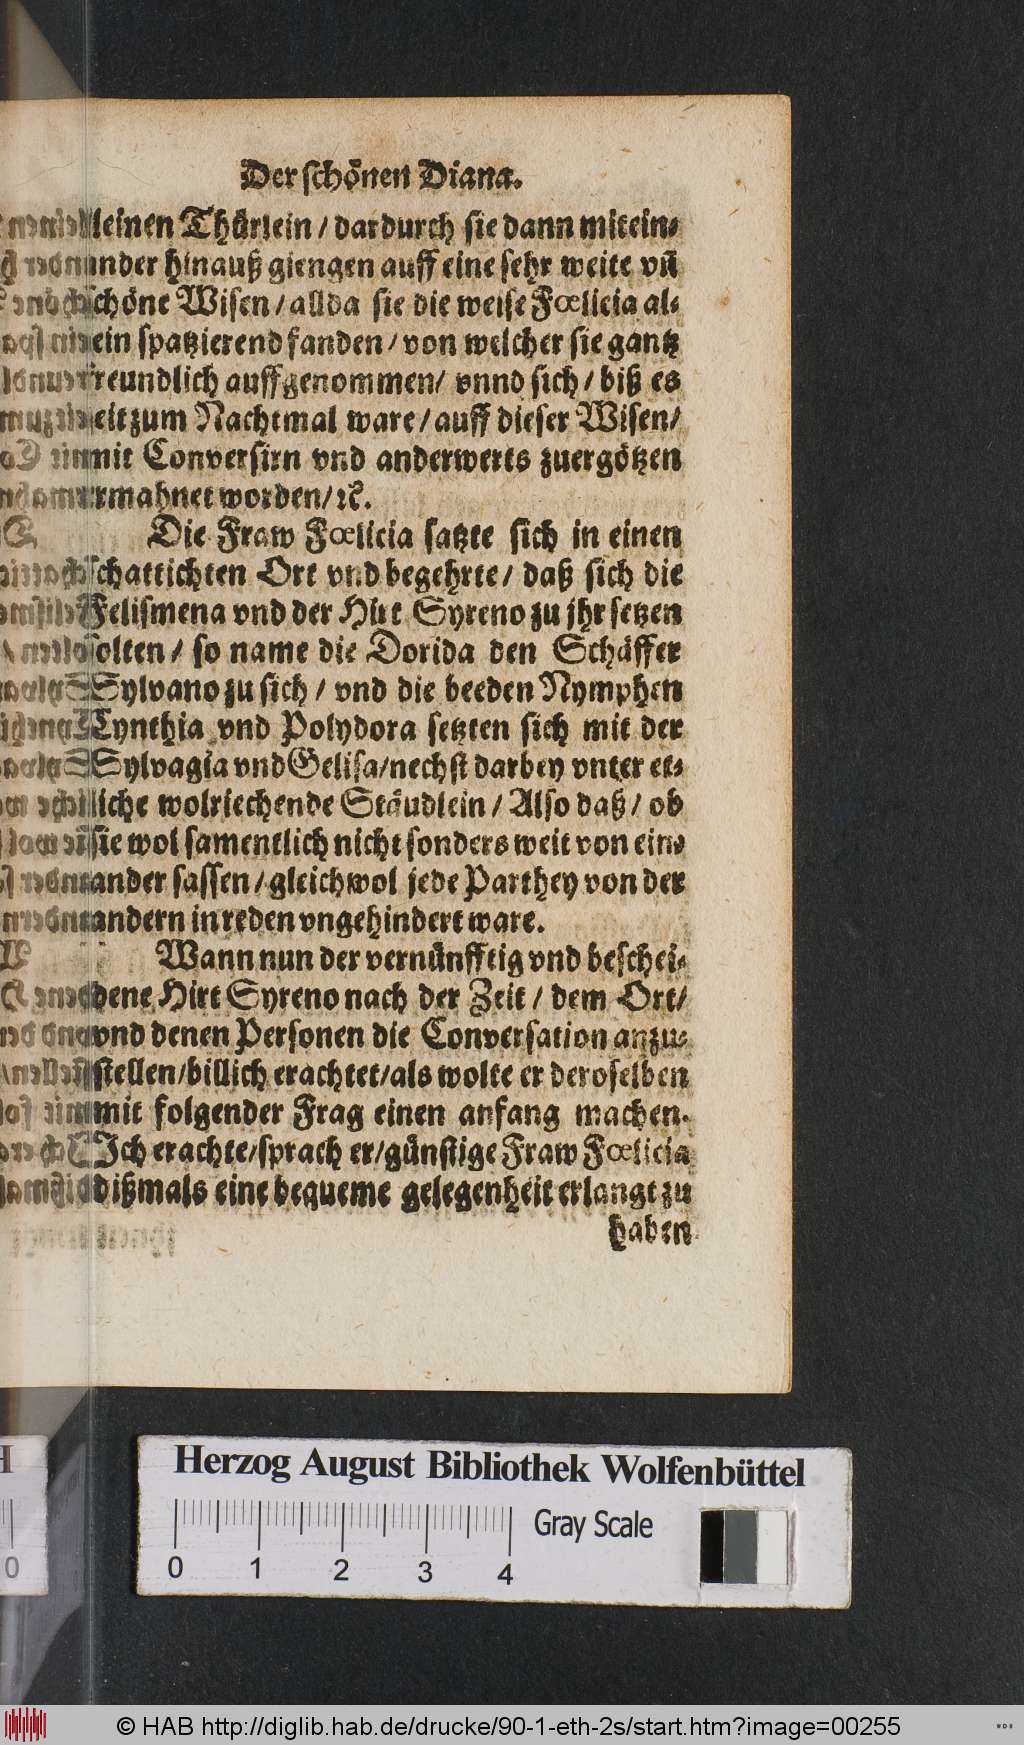 Der schönen Diana.
leinen Thürlein / dardurch sie dann mitein⸗
nder hinauß giengen auff eine sehr weite vñ
chöne Wisen / allda sie die weise Fœlicia al⸗
ein spatzierend fanden / von welcher sie gantz
reundlich auffgenommen / vnnd sich / biß es
eit zum Nachtmal ware / auff dieser Wisen /
mit Conversirn vnd anderwerts zuergötzen
rmahnet worden / ꝛc.
Die Fraw Fœlicia satzte sich in einen
schattichten Ort vnd begehrte / daß sich die
Felismena vnd der Hirt Syreno zu jhr setzen
solten / so name die Dorida den Schäffer
Sylvano zu sich / vnd die beeden Nymphen
Cynthia vnd Polydora setzten sich mit der
Sylvagia vnd Belisa / nechst darbey vnter et⸗
liche wolriechende Stäudlein / Also daß / ob
sie wol samentlich nicht sonders weit von ein⸗
ander sassen / gleichwol jede Parthey von der
andern in reden vngehindert ware.
Wann nun der vernünfftig vnd beschei⸗
dene Hirt Syreno nach der Zeit / dem Ort /
vnd denen Personen die Conversation anzu⸗
stellen / billich erachtet / als wolte er deroselben
mit folgender Frag einen anfang machen.
Ich erachte / sprach er / günstige Fraw Fœlicia
dißmals eine bequeme gelegenheit erlangt zu
haben
Herzog August Bibliothek Wolfenbüttel
Gray Scale
0 1 2 3 4
0
© HAB http://diglib.hab.de/drucke/90-1-eth-2s/start.htm?image=00255